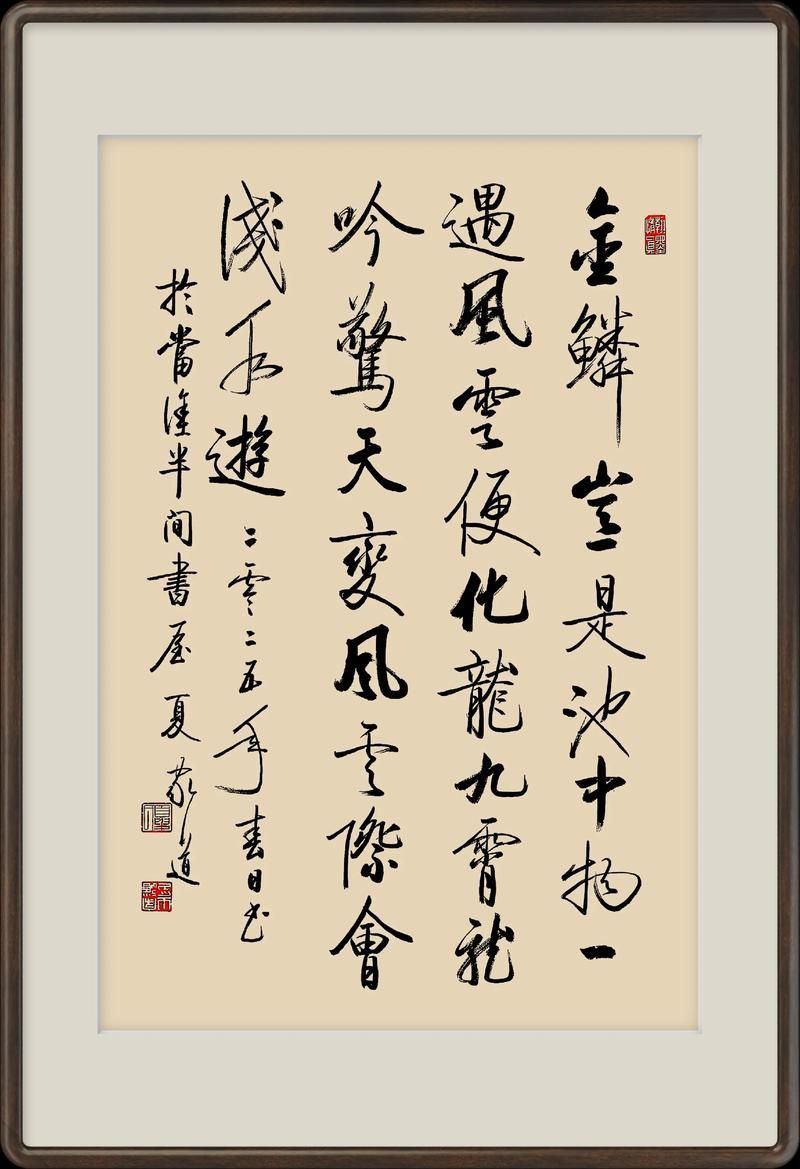 金鱗豈是池中物一
遇風雲便化龍九霄龍
吟驚天變風雲際會
淺水遊 二零二五年春日书
於當塗半間書屋夏敬道